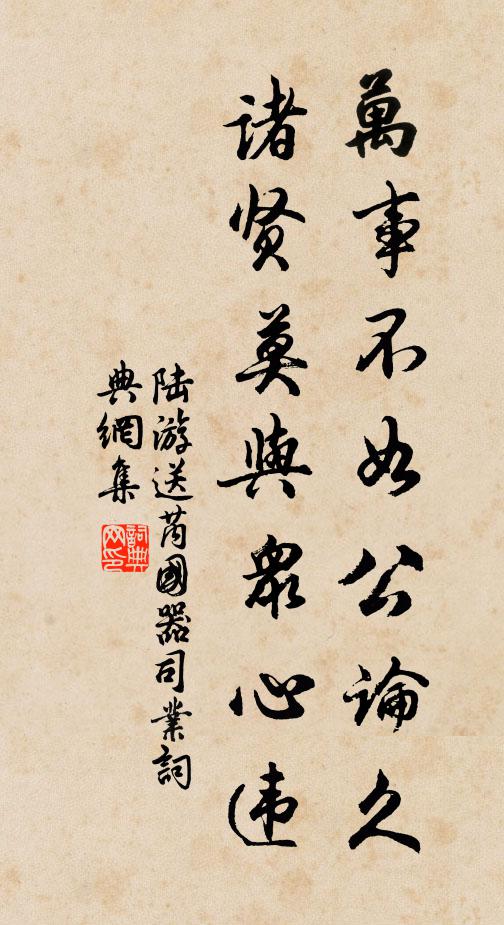 萬事不如公論久
諸贤莫與衆心违
陆游送芮國器司業詞
典網集
詞典网印